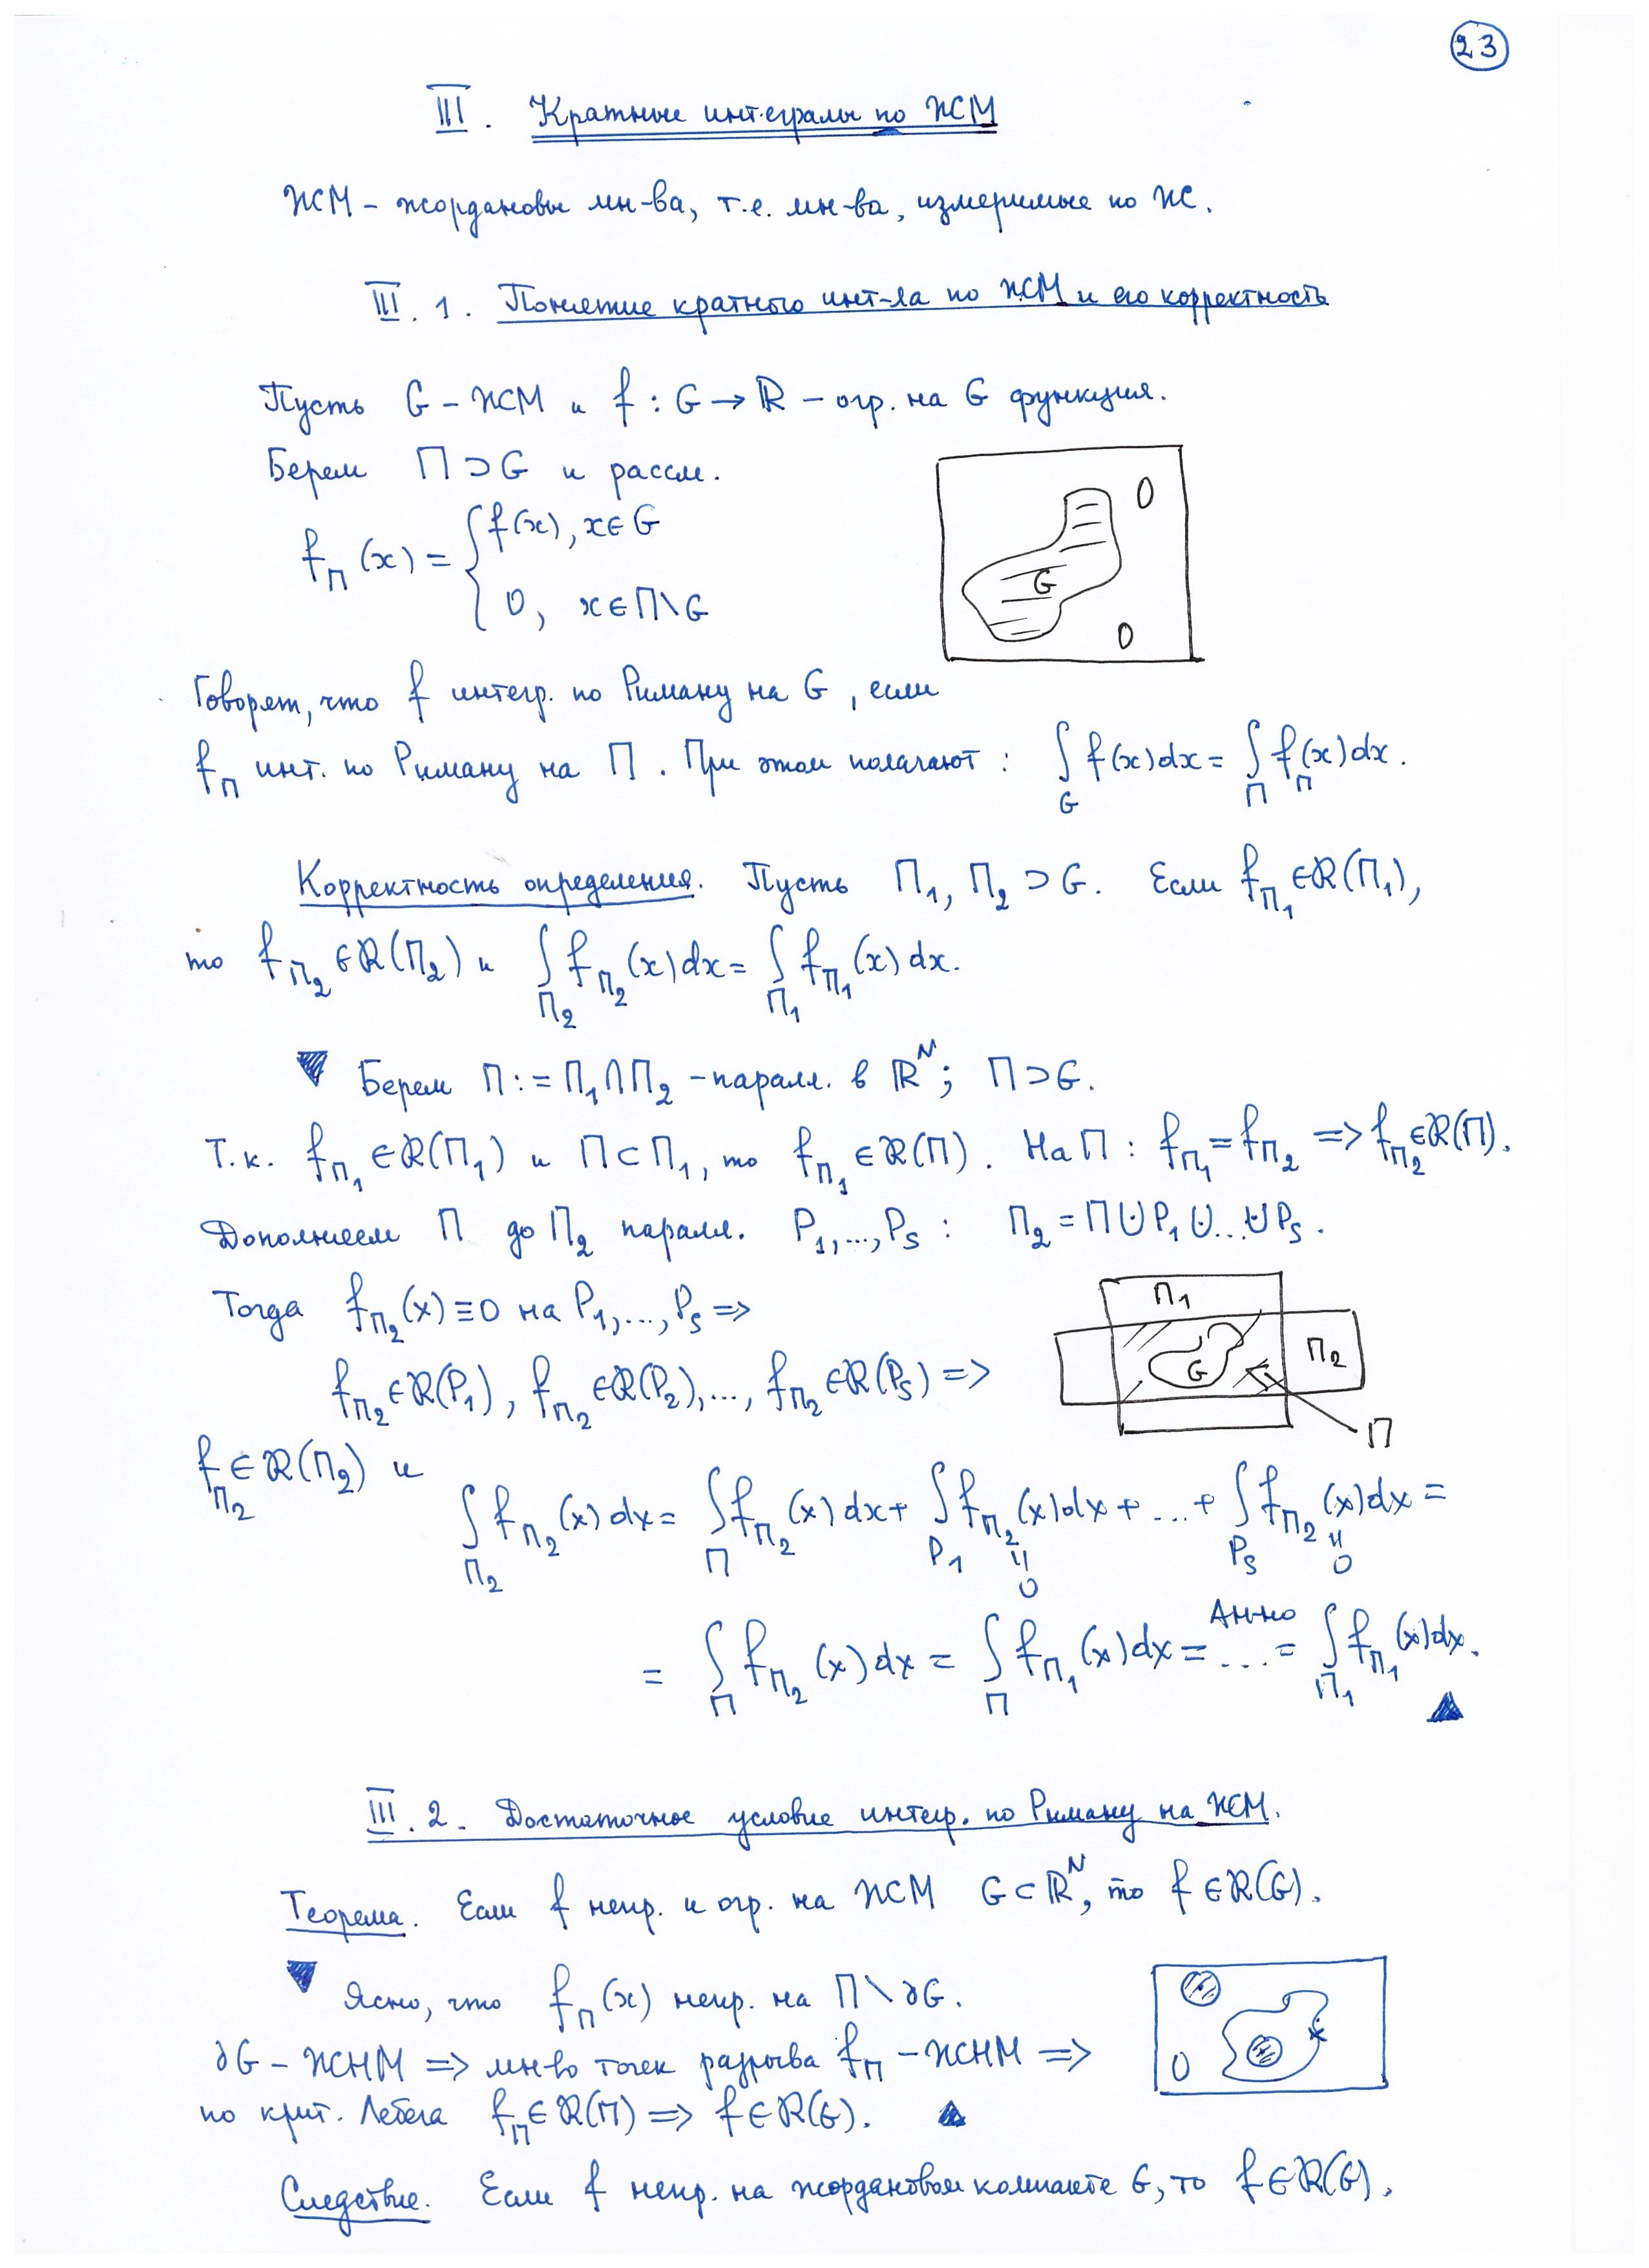 23
III. Кратные интегралы по ЖМ
ЖМ – жордановы мн-ва, т.е. мн-ва, измеримые по Ж.
III. 1. Понятие кратного инт-ла по ЖМ и его корректность
Пусть G – ЖМ и f : G → ℝ – огр. на G функция.
Берем Π ⊃ G и рассм.
f_Π (x) = { f(x), x ∈ G
0, x ∈ Π \ G
0
G
0
Говорят, что f интегр. по Риману на G, если
f_Π инт. по Риману на Π. При этом полагают : ∫_G f(x)dx = ∫_Π f_Π(x)dx.
Корректность определения. Пусть Π₁, Π₂ ⊃ G. Если f_Π₁ ∈ R(Π₁),
то f_Π₂ ∈ R(Π₂) и ∫_Π₂ f_Π₂(x)dx = ∫_Π₁ f_Π₁(x)dx.
▼ Берем Π := Π₁ ∩ Π₂ – паралл. в ℝᴺ; Π ⊃ G.
Т.к. f_Π₁ ∈ R(Π₁) и Π ⊂ Π₁, то f_Π₁ ∈ R(Π). На Π : f_Π₁ = f_Π₂ => f_Π₂ ∈ R(Π).
Дополняем Π до Π₂ паралл. P₁,...,P_S : Π₂ = Π ⊍ P₁ ⊍ ... ⊍ P_S.
Тогда f_Π₂(x) ≡ 0 на P₁,...,P_S =>
Π₁
G
Π₂
Π
f_Π₂ ∈ R(P₁), f_Π₂ ∈ R(P₂),..., f_Π₂ ∈ R(P_S) =>
f_Π₂ ∈ R(Π₂) и
∫_Π₂ f_Π₂(x)dx = ∫_Π f_Π₂(x)dx + ∫_P₁ f_Π₂(x)dx + ... + ∫_P_S f_Π₂(x)dx =
|| 0 || 0
= ∫_Π f_Π₂(x)dx = ∫_Π f_Π₁(x)dx = ... = ∫_Π₁ f_Π₁(x)dx. ▲
Ан-но
III. 2. Достаточное условие интегр. по Риману на ЖМ.
Теорема. Если f непр. и огр. на ЖМ G ⊂ ℝᴺ, то f ∈ R(G).
▼ Ясно, что f_Π(x) непр. на Π \ ∂G.
∂G – ЖНМ => мн-во точек разрыва f_Π – ЖНМ =>
0
по крит. Лебега f_Π ∈ R(Π) => f ∈ R(G). ▲
Следствие. Если f непр. на жордановом компакте G, то f ∈ R(G).